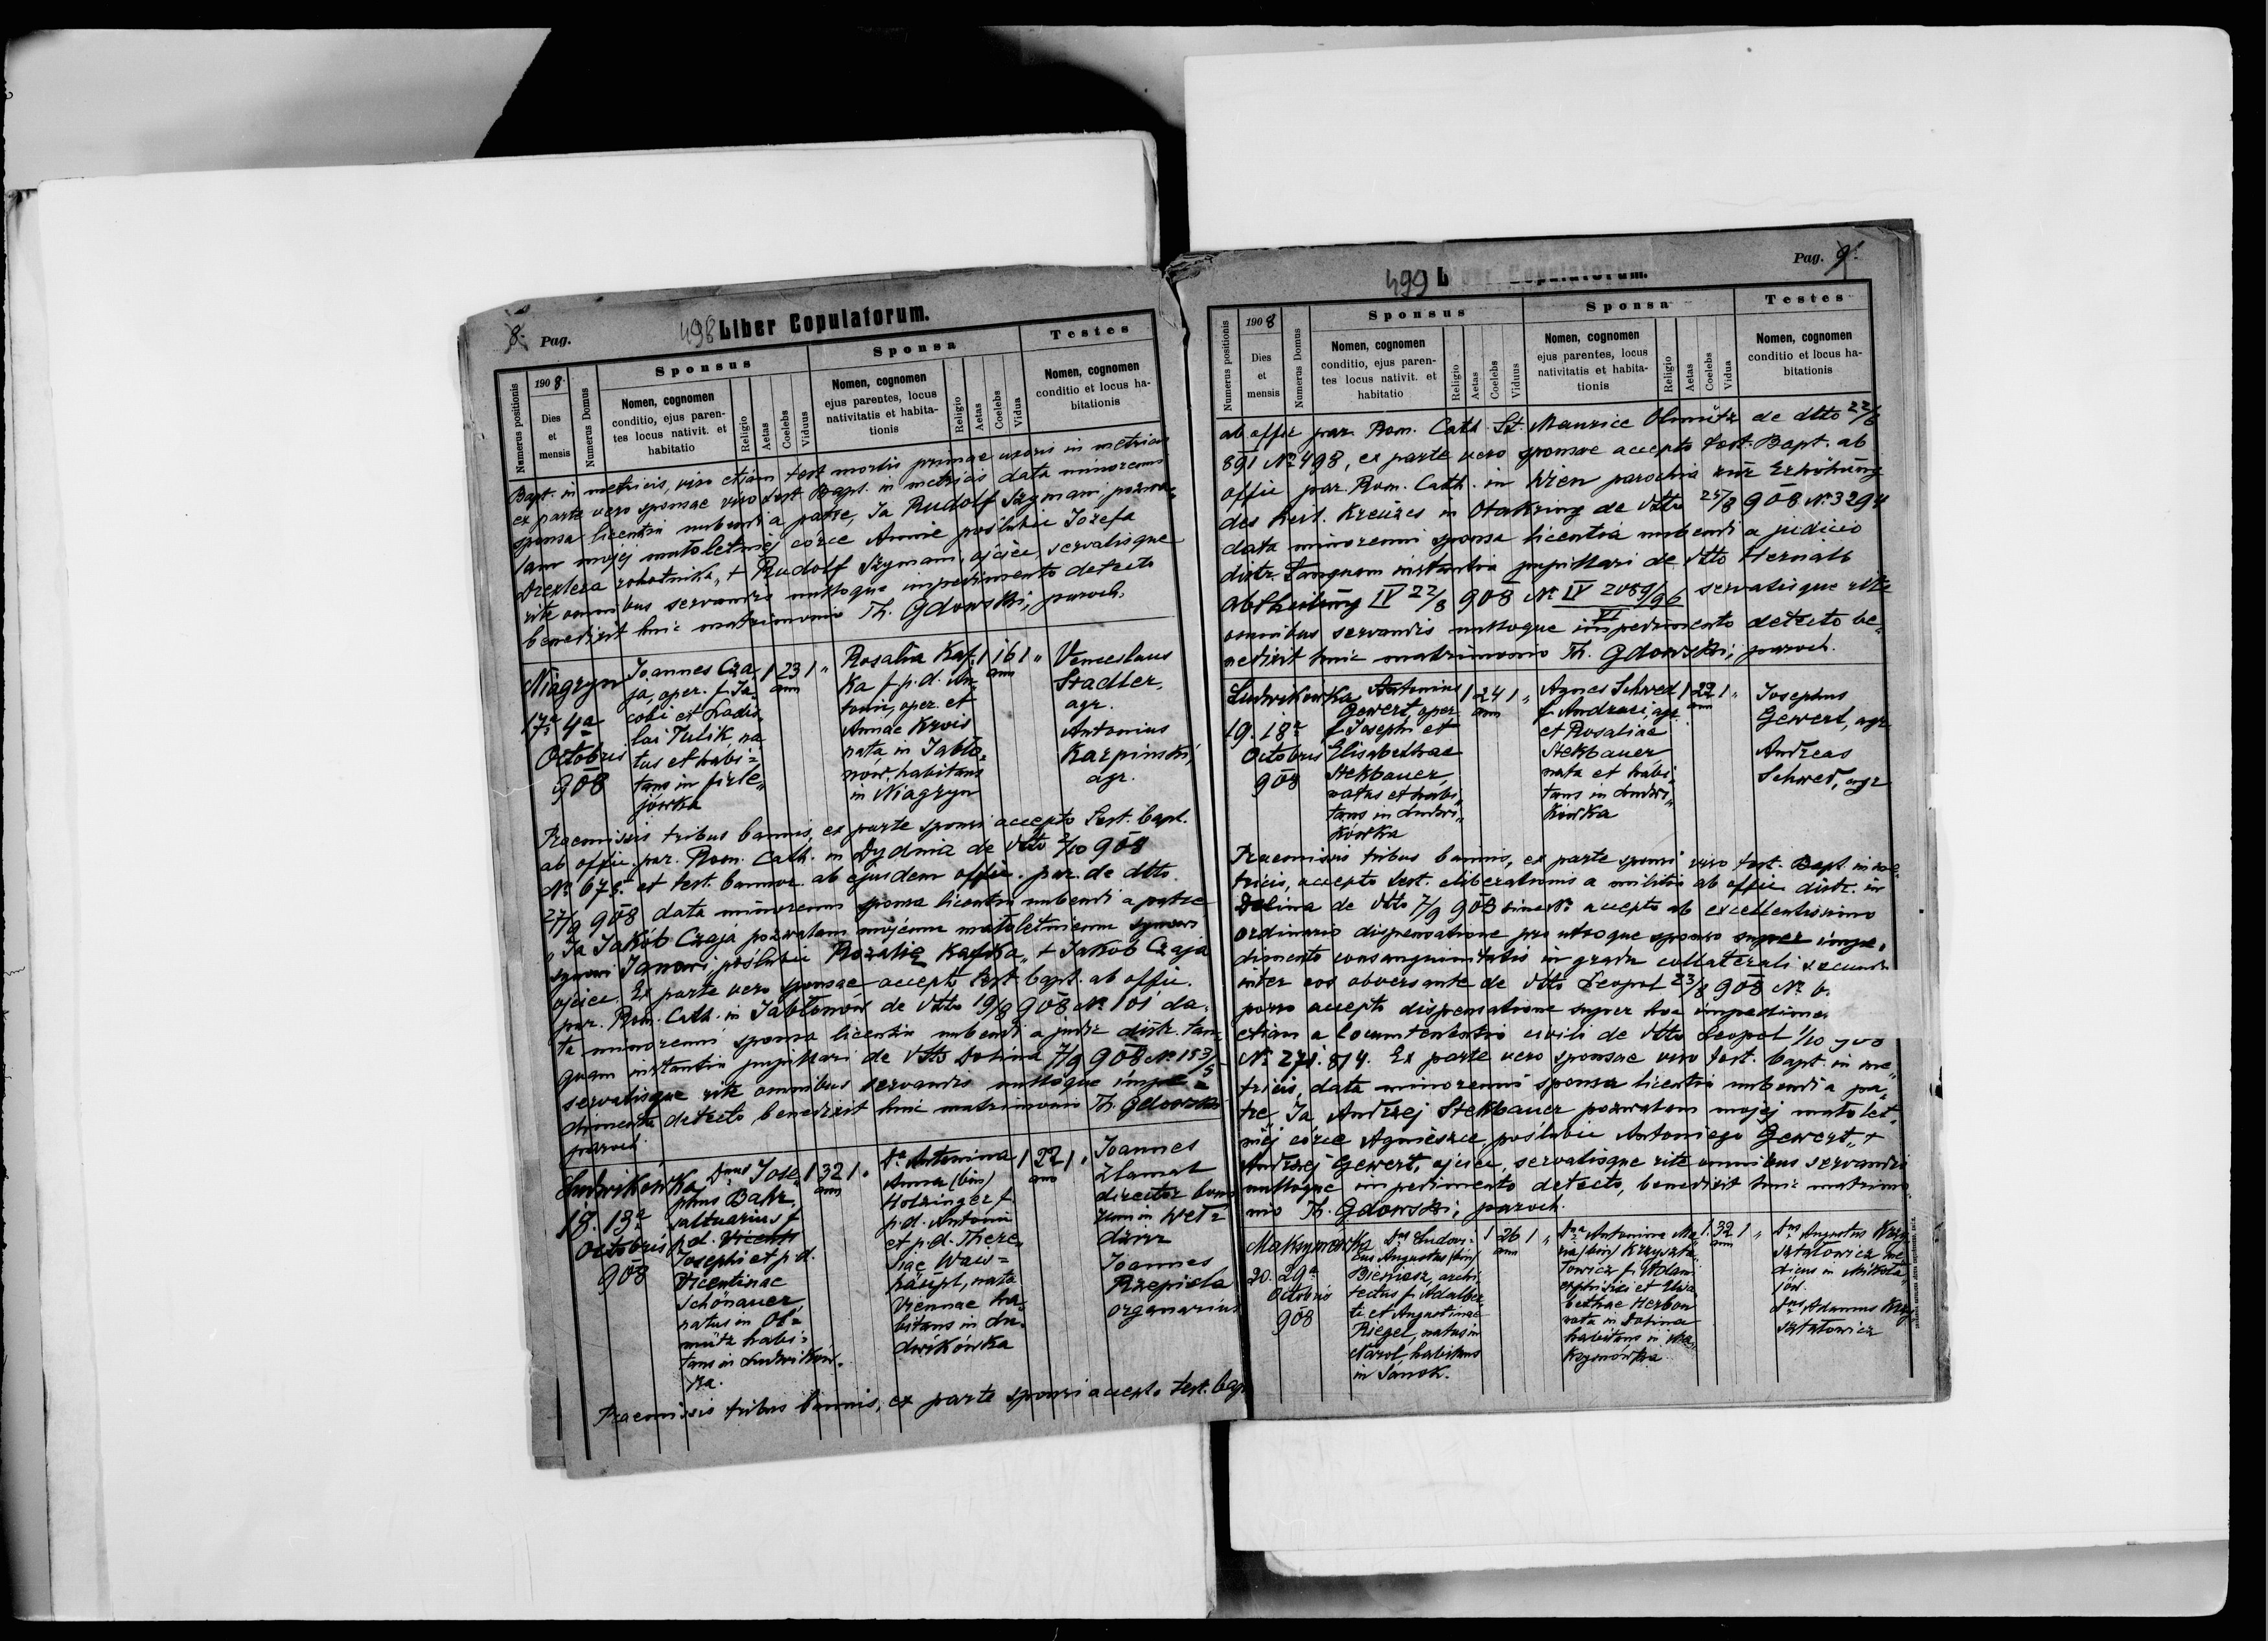 8. Pag.
498 Liber Copulatorum.
Numerus positionis
1908.
Dies et mensis
Numerus Domus
Sponsus
Nomen, cognomen
conditio, ejus paren-
tes locus nativit. et
habitatio
Religio
Aetas
Coelebs
Viduus
Sponsa
Nomen, cognomen
ejus parentes, locus
nativitatis et habita-
tionis
Religio
Aetas
Coelebs
Vidua
Testes
Nomen, cognomen
conditio et locus ha-
bitationis
Bapt. in metricis, viso etiam test mortis primae uxoris in metricis
ex parte vero sponsae viso test Bapt. in metricis data minorenni
sponsa licentia nubendi a patre, Ja Rudolf Szymani, pozwa-
lam mojej małoletniej córce Annie poślubić Józefa
Drexlera robotnika, + Rudolf Szymani, ojciec, servatisque
rite omnibus servandis nulloque impedimento detecto
benedixit huic matrimonio Th. Gdowski, paroch.
Niagryn
17. 4a
Octobris
908
Joannes Cza-
ja, oper. f. Ja-
cobi et Ladis-
lai Tulik na-
tus et habi-
tans in
jówka
1 23 1 "
ann
Rosalia Kaf-
ka f. p. d. An-
tonii, oper. et
Annae Krois
nata in Jabło-
nów, habitans
in Niagryn
1 16 1 "
ann
Venceslaus
Stadler,
agr.
Antonius
Karpinski,
agr.
Praemissis tribus bannis, ex parte sponsi accepto test. bapt.
ab offic. par. Rom. Cath. in Dydnia de dtto 2/10 908
No 678. et test. bannor. ab ejusdem offic. par. de dtto
27/9 908 data minorenni sponso licentia nubendi a patre
"Ja Jakób Czaja pozwalam mojemu małoletniemu synowi
synowi Janowi, poślubić Rozalię Kafka" + Jakób Czaja
ojciec. Ex parte vero sponsae accepto test bapt. ab offic.
par. Rom. Cath. in Jabłonów de dtto 19/8 908 No 101 da-
ta minorenni sponsa licentia nubendi a judic distr. tan-
quam instantia pupillari de dtto Dolina 7/9 908 No 153/5
servatisque rite omnibus servandis nulloque impe-
dimento detecto, benedixit huic matrimonio Th. Gdowski
paroch
Ludwikówka
18. 13a
Octobris
908
Dnus Jose-
phus Bahr,
saltuarius f.
p. d. Vicenti
Josephi et p. d.
Vicentinae
Schönauer
natus in Ol-
mütz habi-
tans in Ludwików-
ka.
1 32 1 "
ann
Da Antonina
Anna (bin)
Holzinger f.
p. d. Antonii
et p. d. There-
siae Wais-
häupl, nata
Viennae ha-
bitans in Lu-
dwikówka
1 22 1 "
ann
Joannes
Zlamal
director bono-
rum in Wel-
dzirz
Joannes
Rzepiela
organarius
Praemissis tribus bannis, ex parte sponsi accepto test. bap.
499 Liber Copulatorum.
Pag. 9.
Numerus positionis
1908
Dies et mensis
Numerus Domus
Sponsus
Nomen, cognomen
conditio, ejus paren-
tes locus nativit. et
habitatio
Religio
Aetas
Coelebs
Viduus
Sponsa
Nomen, cognomen
ejus parentes, locus
nativitatis et habita-
tionis
Religio
Aetas
Coelebs
Vidua
Testes
Nomen, cognomen
conditio et locus ha-
bitationis
ab offic par. Rom. Cath. St. Maurice Olmütz de dtto 22/6
891 No 498, ex parte vero sponsae accepto test. Bapt. ab
offic par. Rom. Cath. in Wien parochia zur Erhöhung
des heil. Kreuzes in Otakring de dtto 25/8 908 No 3294
data minorenni sponsa licentia nubendi a judicio
distr. tanquam instantia pupillari de dtto Hernals
Abtheilung IV 22/8 908 No IV 2089/96 VI servatisque rite
omnibus servandis nulloque impedimento detecto be-
nedixit huic matrimonio Th. Gdowski, paroch.
Ludwikówka
19. 18a
Octobris
908
Antonius
Gewert, oper
f. Josephi et
Elisabethae
Stekbauer,
natus et habi-
tans in Ludwi-
kówka
1 24 1 "
ann
Agnes Schwed
f. Andreae, agr.
et Rosaliae
Stekbauer
nata et habi-
tans in Ludwi-
kówka
1 22 1 "
ann
Josephus
Gewert, agr.
Andreas
Schwed, agr
Praemissis tribus bannis, ex parte sponsi viso test. Bapt. in me-
tricis, accepto test. eliberationis a militia ab offic distr. in
Dolina de dtto 7/9 908 sine No accepto ab excellentissimo
ordinario dispensatione pro utroque sponso super impe-
dimento consanguinitatis in gradu collaterali secundo
inter eos obversante de dtto Leopol 23/8 908 No
porro accepto dispensatione super hoc impedime
etiam a locumtenentia civili de dtto Leopol 1/10 908
No 271. 814. Ex parte vero sponsae viso test. bapt. in me-
tricis, data minorenni sponsa licentia nubendi a pa-
tre "Ja Andrzej Stekbauer pozwalam mojej małolet-
niej córce Agnieszce, poślubić Antoniego Gewert" +
Andrzej Gewert, ojciec, servatisque rite omnibus servandis
nulloque impedimento detecto, benedixit huic matrimo-
nio Th. Gdowski, paroch.
Maksymówka
20. 29a
Octobris
908
Dnus Ludovi-
cus Augustus (bin)
Biernasz, archi-
tectus f. Adalber-
ti et Augustinae
Riegel, natus in
Narol, habitans
in Sanok.
1 26 1 "
ann
Dna Antonina Ma-
ria (bin) Krzyszta-
łowicz f. Adami
et Elisa-
bethae Herbon
nata in Dolina
habitans in Ma-
ksymówka
1 32 1 "
ann
Dnus Augustus Krzy-
ształowicz me-
dicus in Mikoła-
jów.
Dnus Adamus Krzy-
ształowicz